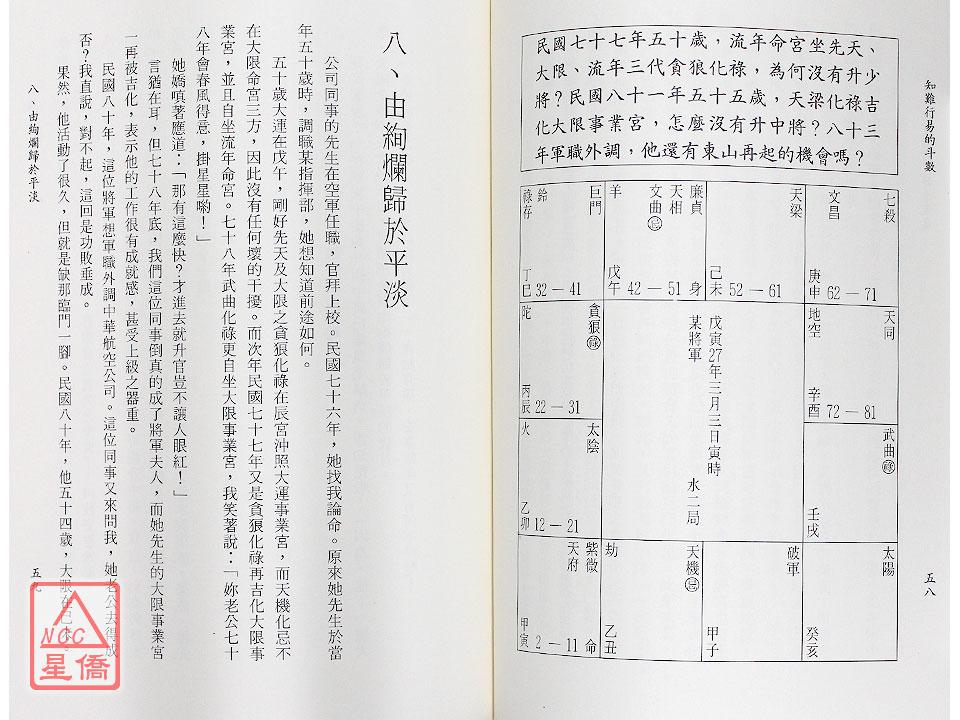 知難行易的斗數
五八
民國七十七年五十歲，流年命宮坐先天、
大限、流年三代貪狼化祿，為何沒有升少
將？民國八十一年五十五歲，天梁化祿吉
化大限事業宮，怎麼沒有升中將？八十三
年軍職外調，他還有東山再起的機會嗎？
巨門
鈴
祿存
丁巳 32—41
廉貞
天相
文曲忌
羊
戊午 42—51 身
天梁
己未 52—61
七殺
文昌
庚申 62—71
貪狼祿
陀
丙辰 22—31
戊寅27年三月三日寅時
某將軍
水二局
天同
地空
辛酉 72—81
太陰
火
乙卯 12—21
武曲祿
壬戌
紫微
天府
甲寅 2—11 命
天機忌
劫
乙丑
破軍
甲子
太陽
癸亥
八、由絢爛歸於平淡
公司同事的先生在空軍任職，官拜上校。民國七十六年，她找我論命。原來她先生於當
年五十歲時，調職某指揮部，她想知道前途如何。
五十歲大運在戊午，剛好先天及大限之貪狼化祿在辰宮沖照大運事業宮，而天機化忌不
在大限命宮三方，因此沒有任何壞的干擾。而次年民國七十七年又是貪狼化祿再吉化大限事
業宮，並且自坐流年命宮。七十八年武曲化祿更自坐大限事業宮，我笑著說：「妳老公七十
八年會春風得意，掛星星喲！」
她嬌嗔著應道：「那有這麼快？才進去就升官豈不讓人眼紅！」
言猶在耳，但七十八年底，我們這位同事倒真的成了將軍夫人，而她先生的大限事業宮
一再被吉化，表示他的工作很有成就感，甚受上級之器重。
民國八十年，這位將軍想軍職外調中華航空公司。這位同事又來問我，她老公去得成
否？我直說，對不起，這回是功敗垂成。
果然，他活動了很久，但就是缺那臨門一腳。民國八十年，他五十四歲，大限在己未。
八、由絢爛歸於平淡
五九
NCC
星僑